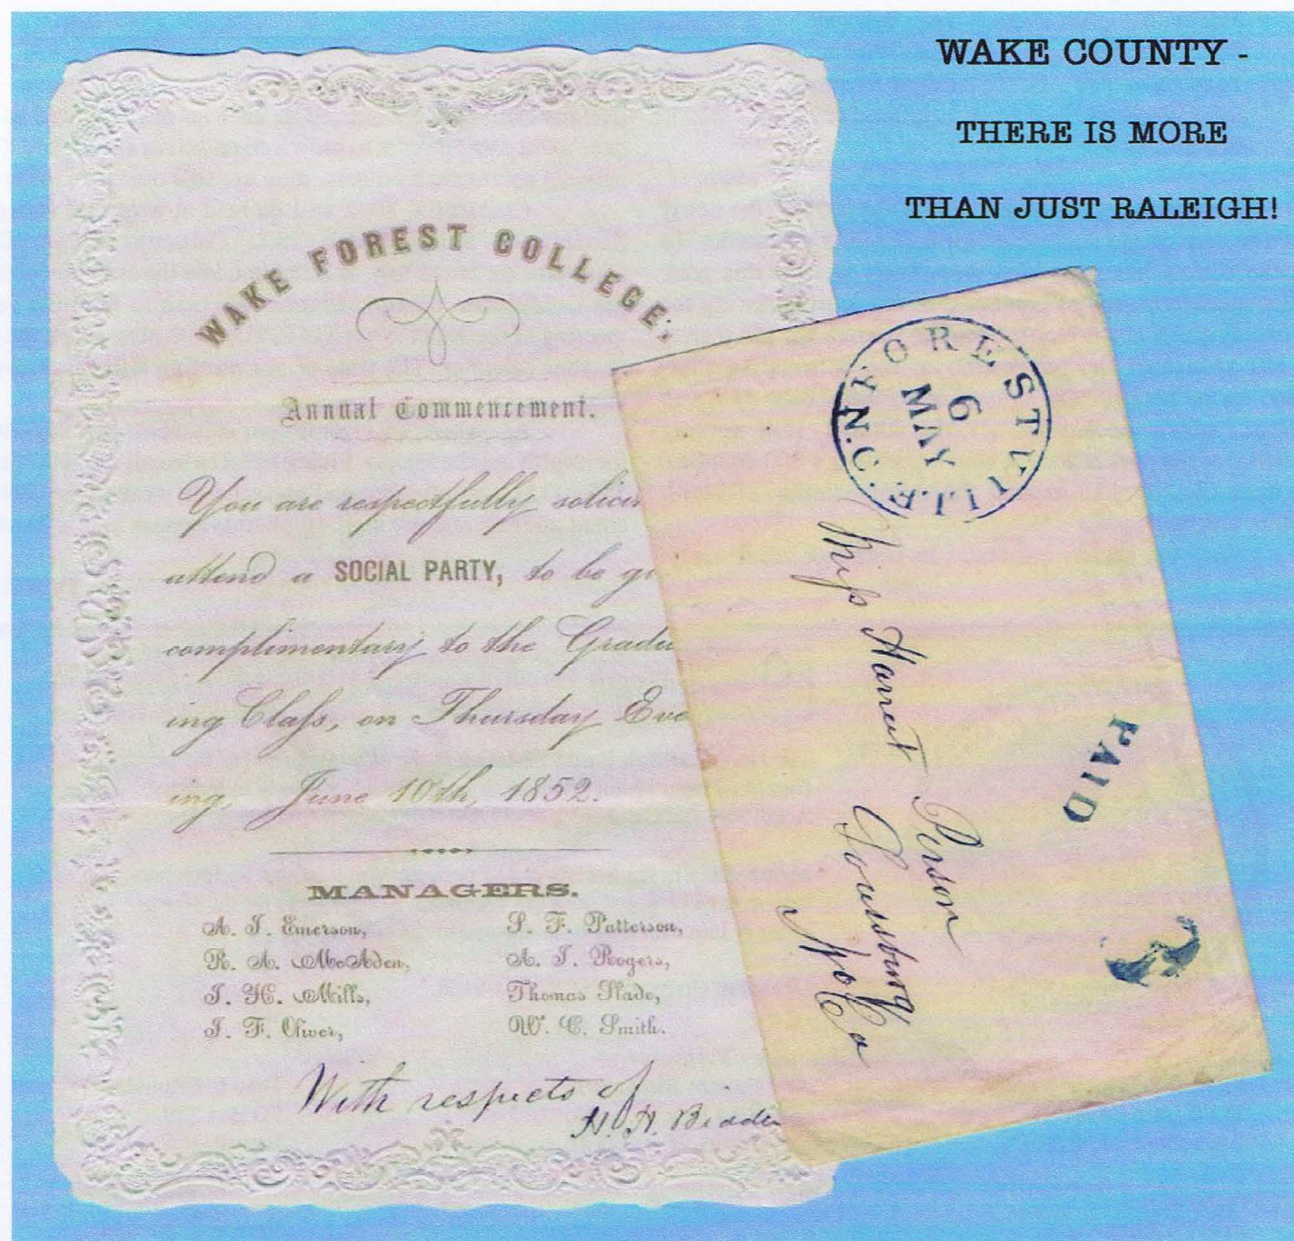 WAKE COUNTY -
THERE IS MORE
THAN JUST RALEIGH!
WAKE FOREST COLLEGE,
Annual Commencement.
You are respectfully solici
attend a SOCIAL PARTY, to be gi
complimentary to the Gradu
ing Class, on Thursday Eve
ing, June 10th, 1852.
MANAGERS.
A. J. Emerson,
R. A. McAden,
J. H. Mills,
J. F. Oliver,
S. F. Patterson,
A. J. Rogers,
Thomas Slade,
W. C. Smith.
With respects of
FORESTVILLE N.C.
6
MAY
Miss Harriet Person
Louisburg
No Ca
PAID
3